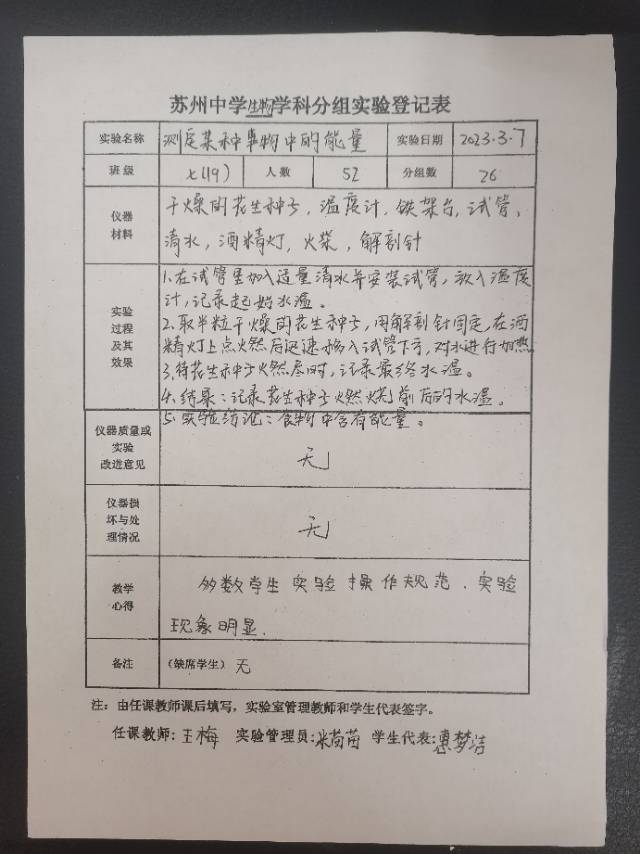 苏州中学生物学科分组实验登记表
实验名称 测定某种事物中的能量 实验日期 2023.3.7
班级 七(19) 人数 52 分组数 26
仪器材料 干燥的花生种子,温度计,铁架台,试管,
清水,酒精灯,火柴,解剖针
实验过程及其效果 1.在试管里加入适量清水并安装试管,放入温度
计,记录起始水温。
2.取半粒干燥的花生种子,用解剖针固定,在酒
精灯上点火燃后迅速移入试管下方,对水进行加热
3.待花生种子火燃尽时,记录最终水温。
4.结果:记录花生种子燃烧前后的水温。
5.实验结论:食物中含有能量。
仪器质量或实验改进意见 无
仪器损坏与处理情况 无
教学心得 多数学生实验操作规范.实验
现象明显.
备注 (缺席学生) 无
注:由任课教师课后填写,实验室管理教师和学生代表签字。
任课教师:王梅 实验管理员:米苗苗 学生代表:惠梦洁